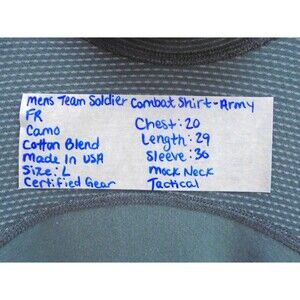 Mens Team Soldier Combat Shirt-Army
FR
Camo
Cotton Blend
Made In USA
Size: L
Certified Gear
Chest: 20
Length: 29
Sleeve: 36
Mock Neck
Tactical